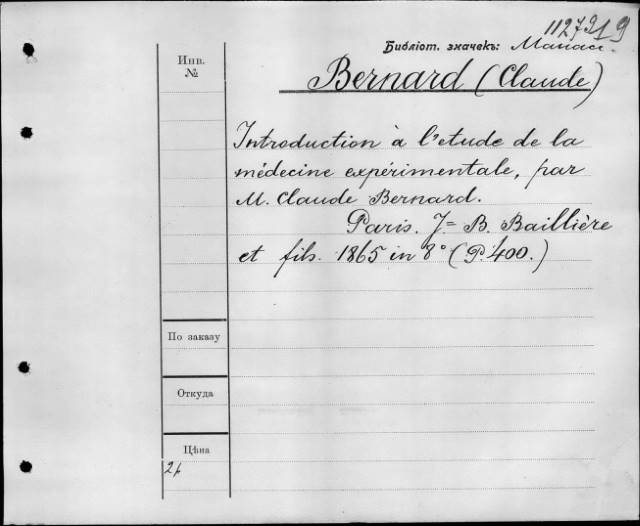 Инв.
№
Библіот. значекъ:
Bernard (Claude)
Introduction à l'etude de la
médecine expérimentale, par
M. Claude Bernard.
Paris. J= B. Baillière
et fils. 1865 in 8° (P. 400.)
По заказу
Откуда
Цѣна